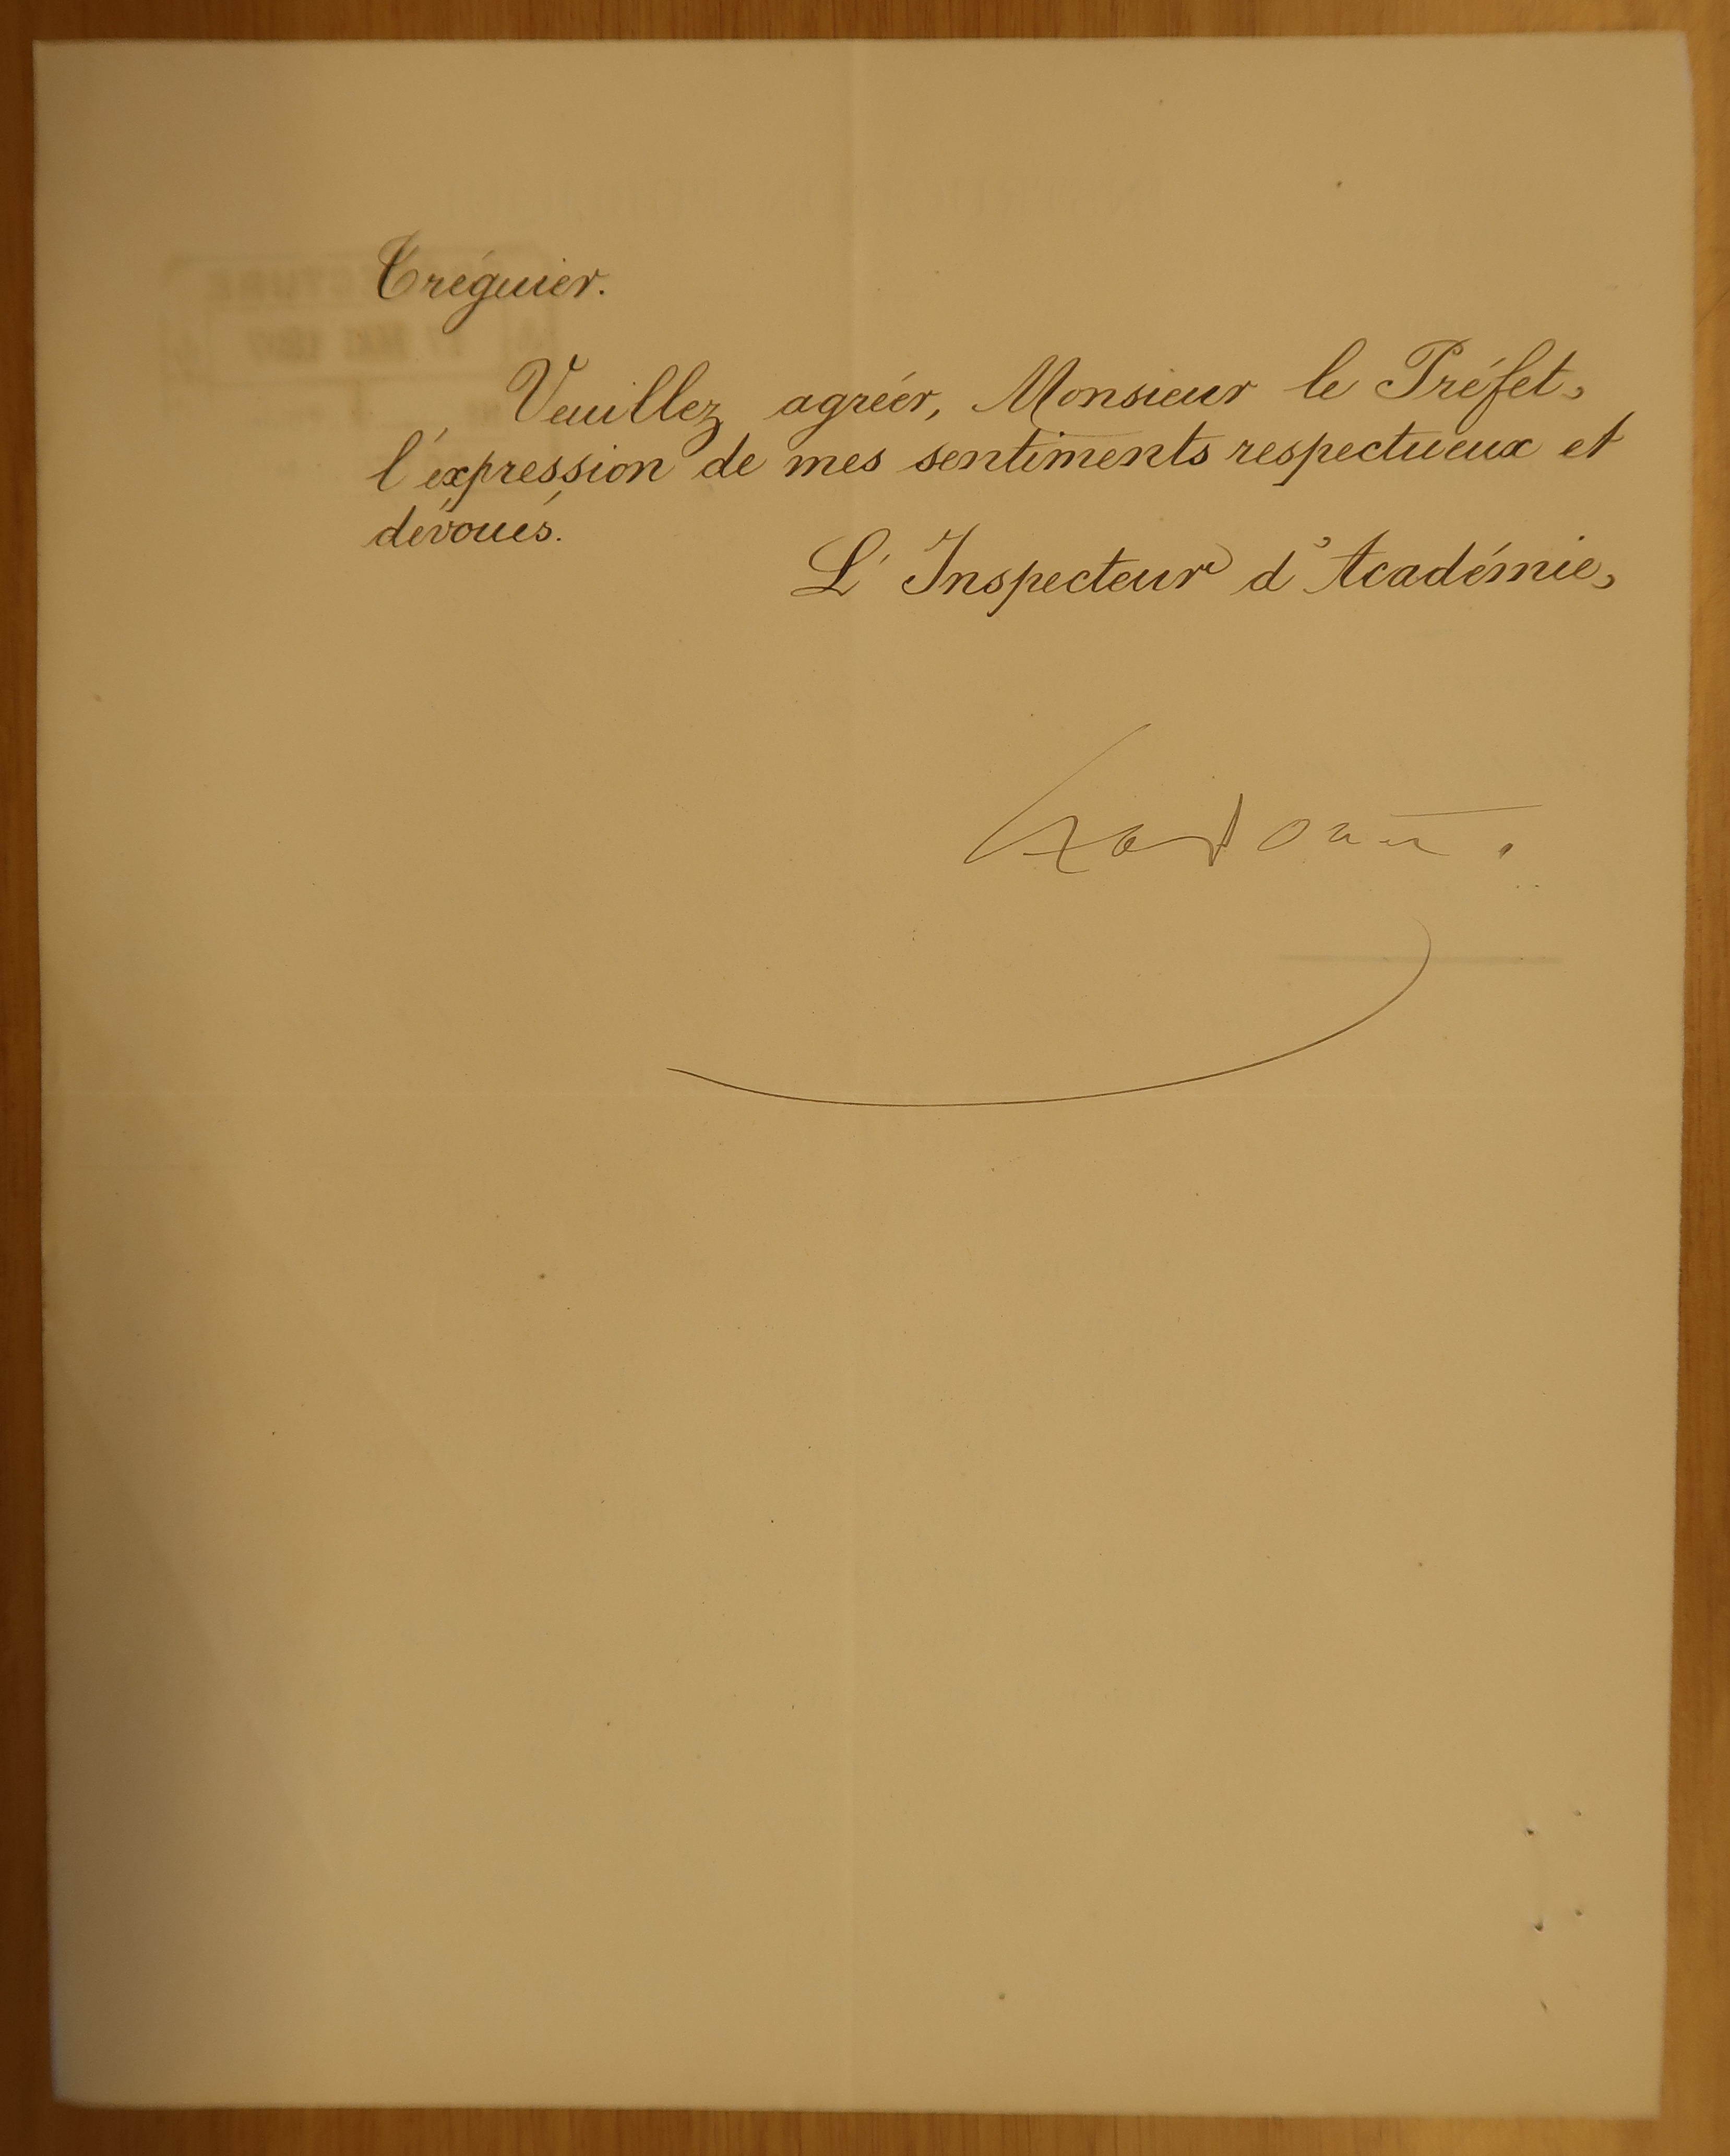 Tréguier.
Veuillez agréer, Monsieur le Préfet,
l'expression de mes sentiments respectueux et
dévoués.
L'Inspecteur d'Académie,